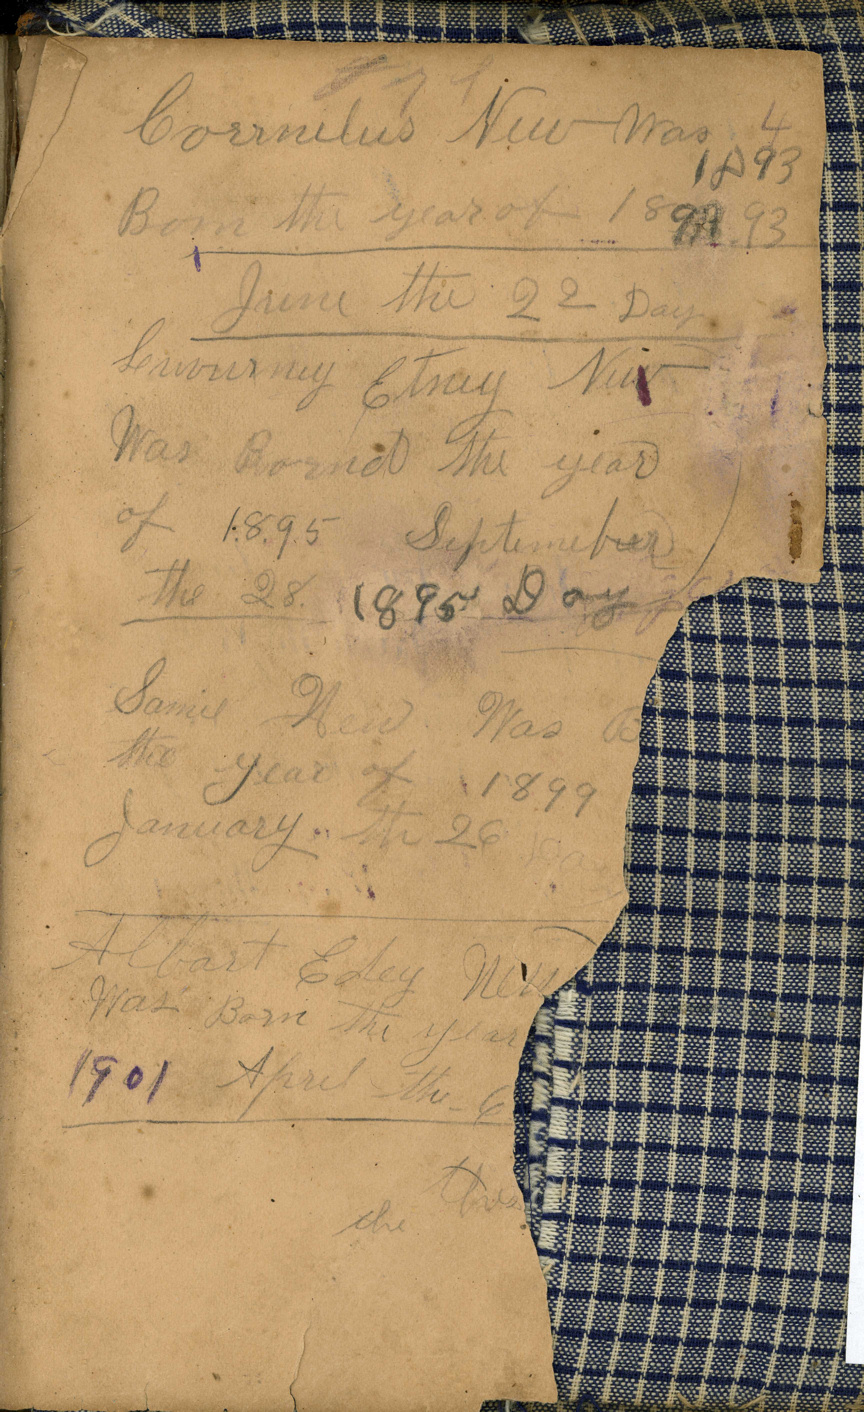 Corrnelus New Was 4
1893
Born the year of 189 .93
June the 22 Day
Etney New
Was Bornd the year
of 1895 Septemeber
the 28. 1895 Day
Samie New. Was B
the year of 1899
January. th 26 Day
Albart Edey New
Was Born the year
1901 April the 6
the